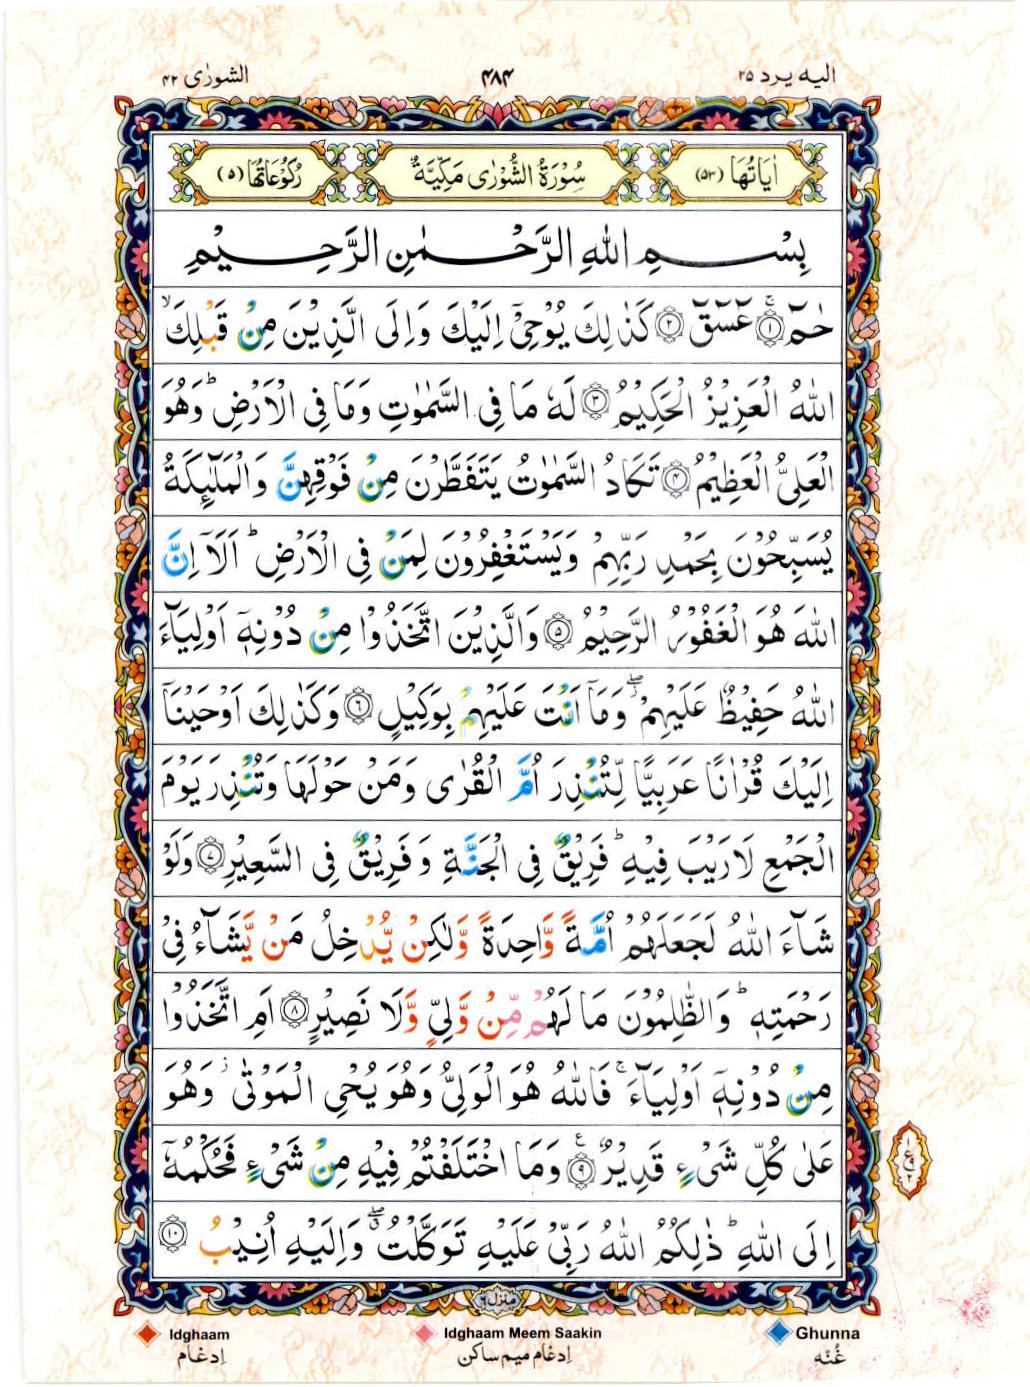 الشورٰى ٤٢
٤٨٤
اليه يرد ٢٥
اٰيَاتُهَا (٥٣)
سُوْرَةُ الشُّوْرٰى مَكِّيَّةٌ
رُكُوْعَاتُهَا (٥)
بِسْمِ اللّٰهِ الرَّحْمٰنِ الرَّحِيْمِ
حٰمٓ ۚ﴿١﴾ عٓسٓقٓ ﴿٢﴾ كَذٰلِكَ يُوْحِىْٓ اِلَيْكَ وَاِلَى الَّذِيْنَ مِنْ قَبْلِكَ ۙ
اللّٰهُ الْعَزِيْزُ الْحَكِيْمُ ﴿٣﴾ لَهٗ مَا فِى السَّمٰوٰتِ وَمَا فِى الْاَرْضِ ؕ وَهُوَ
الْعَلِىُّ الْعَظِيْمُ ﴿٤﴾ تَكَادُ السَّمٰوٰتُ يَتَفَطَّرْنَ مِنْ فَوْقِهِنَّ وَالْمَلٰٓئِكَةُ
يُسَبِّحُوْنَ بِحَمْدِ رَبِّهِمْ وَيَسْتَغْفِرُوْنَ لِمَنْ فِى الْاَرْضِ ؕ اَلَاۤ اِنَّ
اللّٰهَ هُوَ الْغَفُوْرُ الرَّحِيْمُ ﴿٥﴾ وَالَّذِيْنَ اتَّخَذُوْا مِنْ دُوْنِهٖۤ اَوْلِيَآءَ
اللّٰهُ حَفِيْظٌ عَلَيْهِمْ ۖ وَمَاۤ اَنْتَ عَلَيْهِمْ بِوَكِيْلٍ ﴿٦﴾ وَكَذٰلِكَ اَوْحَيْنَاۤ
اِلَيْكَ قُرْاٰنًا عَرَبِيًّا لِّتُنْذِرَ اُمَّ الْقُرٰى وَمَنْ حَوْلَهَا وَتُنْذِرَ يَوْمَ
الْجَمْعِ لَا رَيْبَ فِيْهِ ؕ فَرِيْقٌ فِى الْجَنَّةِ وَفَرِيْقٌ فِى السَّعِيْرِ ﴿٧﴾ وَلَوْ
شَآءَ اللّٰهُ لَجَعَلَهُمْ اُمَّةً وَّاحِدَةً وَّلٰكِنْ يُّدْخِلُ مَنْ يَّشَآءُ فِىْ
رَحْمَتِهٖ ؕ وَالظّٰلِمُوْنَ مَا لَهُمْ مِّنْ وَّلِىٍّ وَّلَا نَصِيْرٍ ﴿٨﴾ اَمِ اتَّخَذُوْا
مِنْ دُوْنِهٖۤ اَوْلِيَآءَ ۚ فَاللّٰهُ هُوَ الْوَلِىُّ وَهُوَ يُحْىِ الْمَوْتٰى ؗ وَهُوَ
عَلٰى كُلِّ شَىْءٍ قَدِيْرٌ ﴿٩﴾ وَمَا اخْتَلَفْتُمْ فِيْهِ مِنْ شَىْءٍ فَحُكْمُهٗۤ
اِلَى اللّٰهِ ؕ ذٰلِكُمُ اللّٰهُ رَبِّىْ عَلَيْهِ تَوَكَّلْتُ ۖ وَاِلَيْهِ اُنِيْبُ ﴿١٠﴾
منزل ٦
Idghaam
Idghaam Meem Saakin
Ghunna
اِدغام
اِدغام ميم ساكن
غُنّه